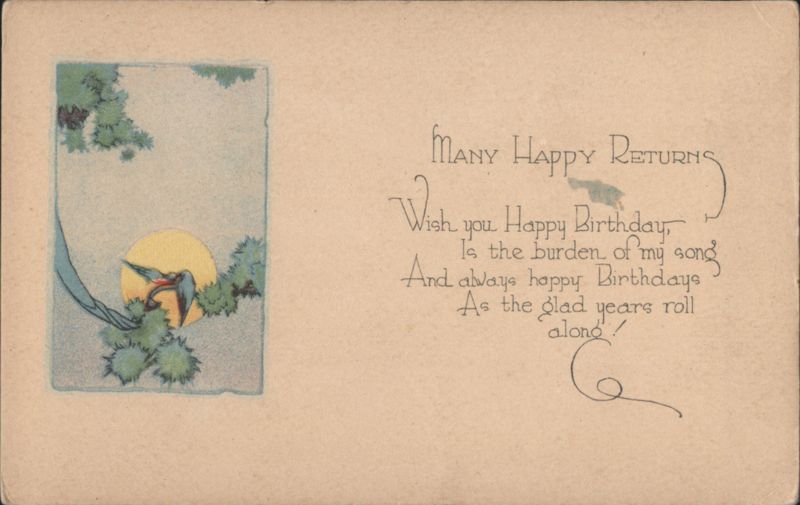 Many Happy Returns
Wish you Happy Birthday,
Is the burden of my song
And always happy Birthdays
As the glad years roll
along!